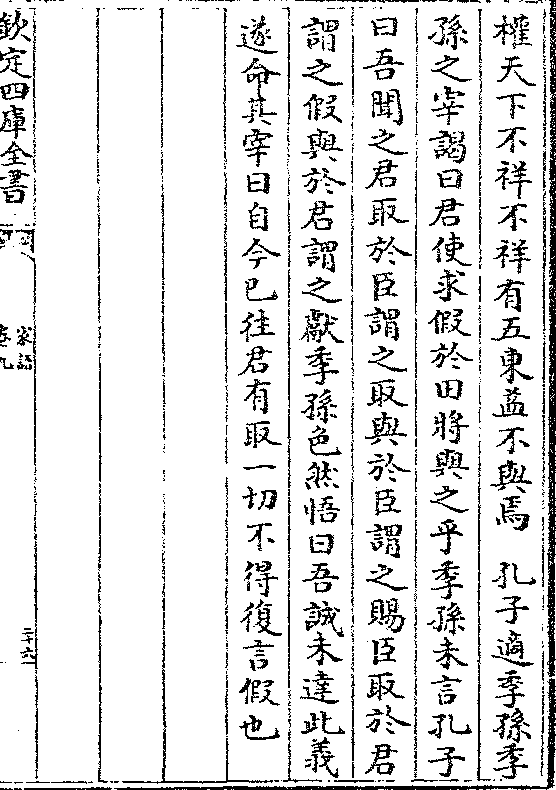 權天下不祥不祥有五東益不與焉　孔子適季孫季
孫之宰謁曰君使求假於田將與之乎季孫未言孔子
曰吾聞之君取於臣謂之取與於臣謂之賜臣取於君
謂之假與於君謂之獻季孫色然悟曰吾誠未達此義
遂命其宰曰自今已往君有取一切不得復言假也
欽定四庫全書
家語
卷九
三十六